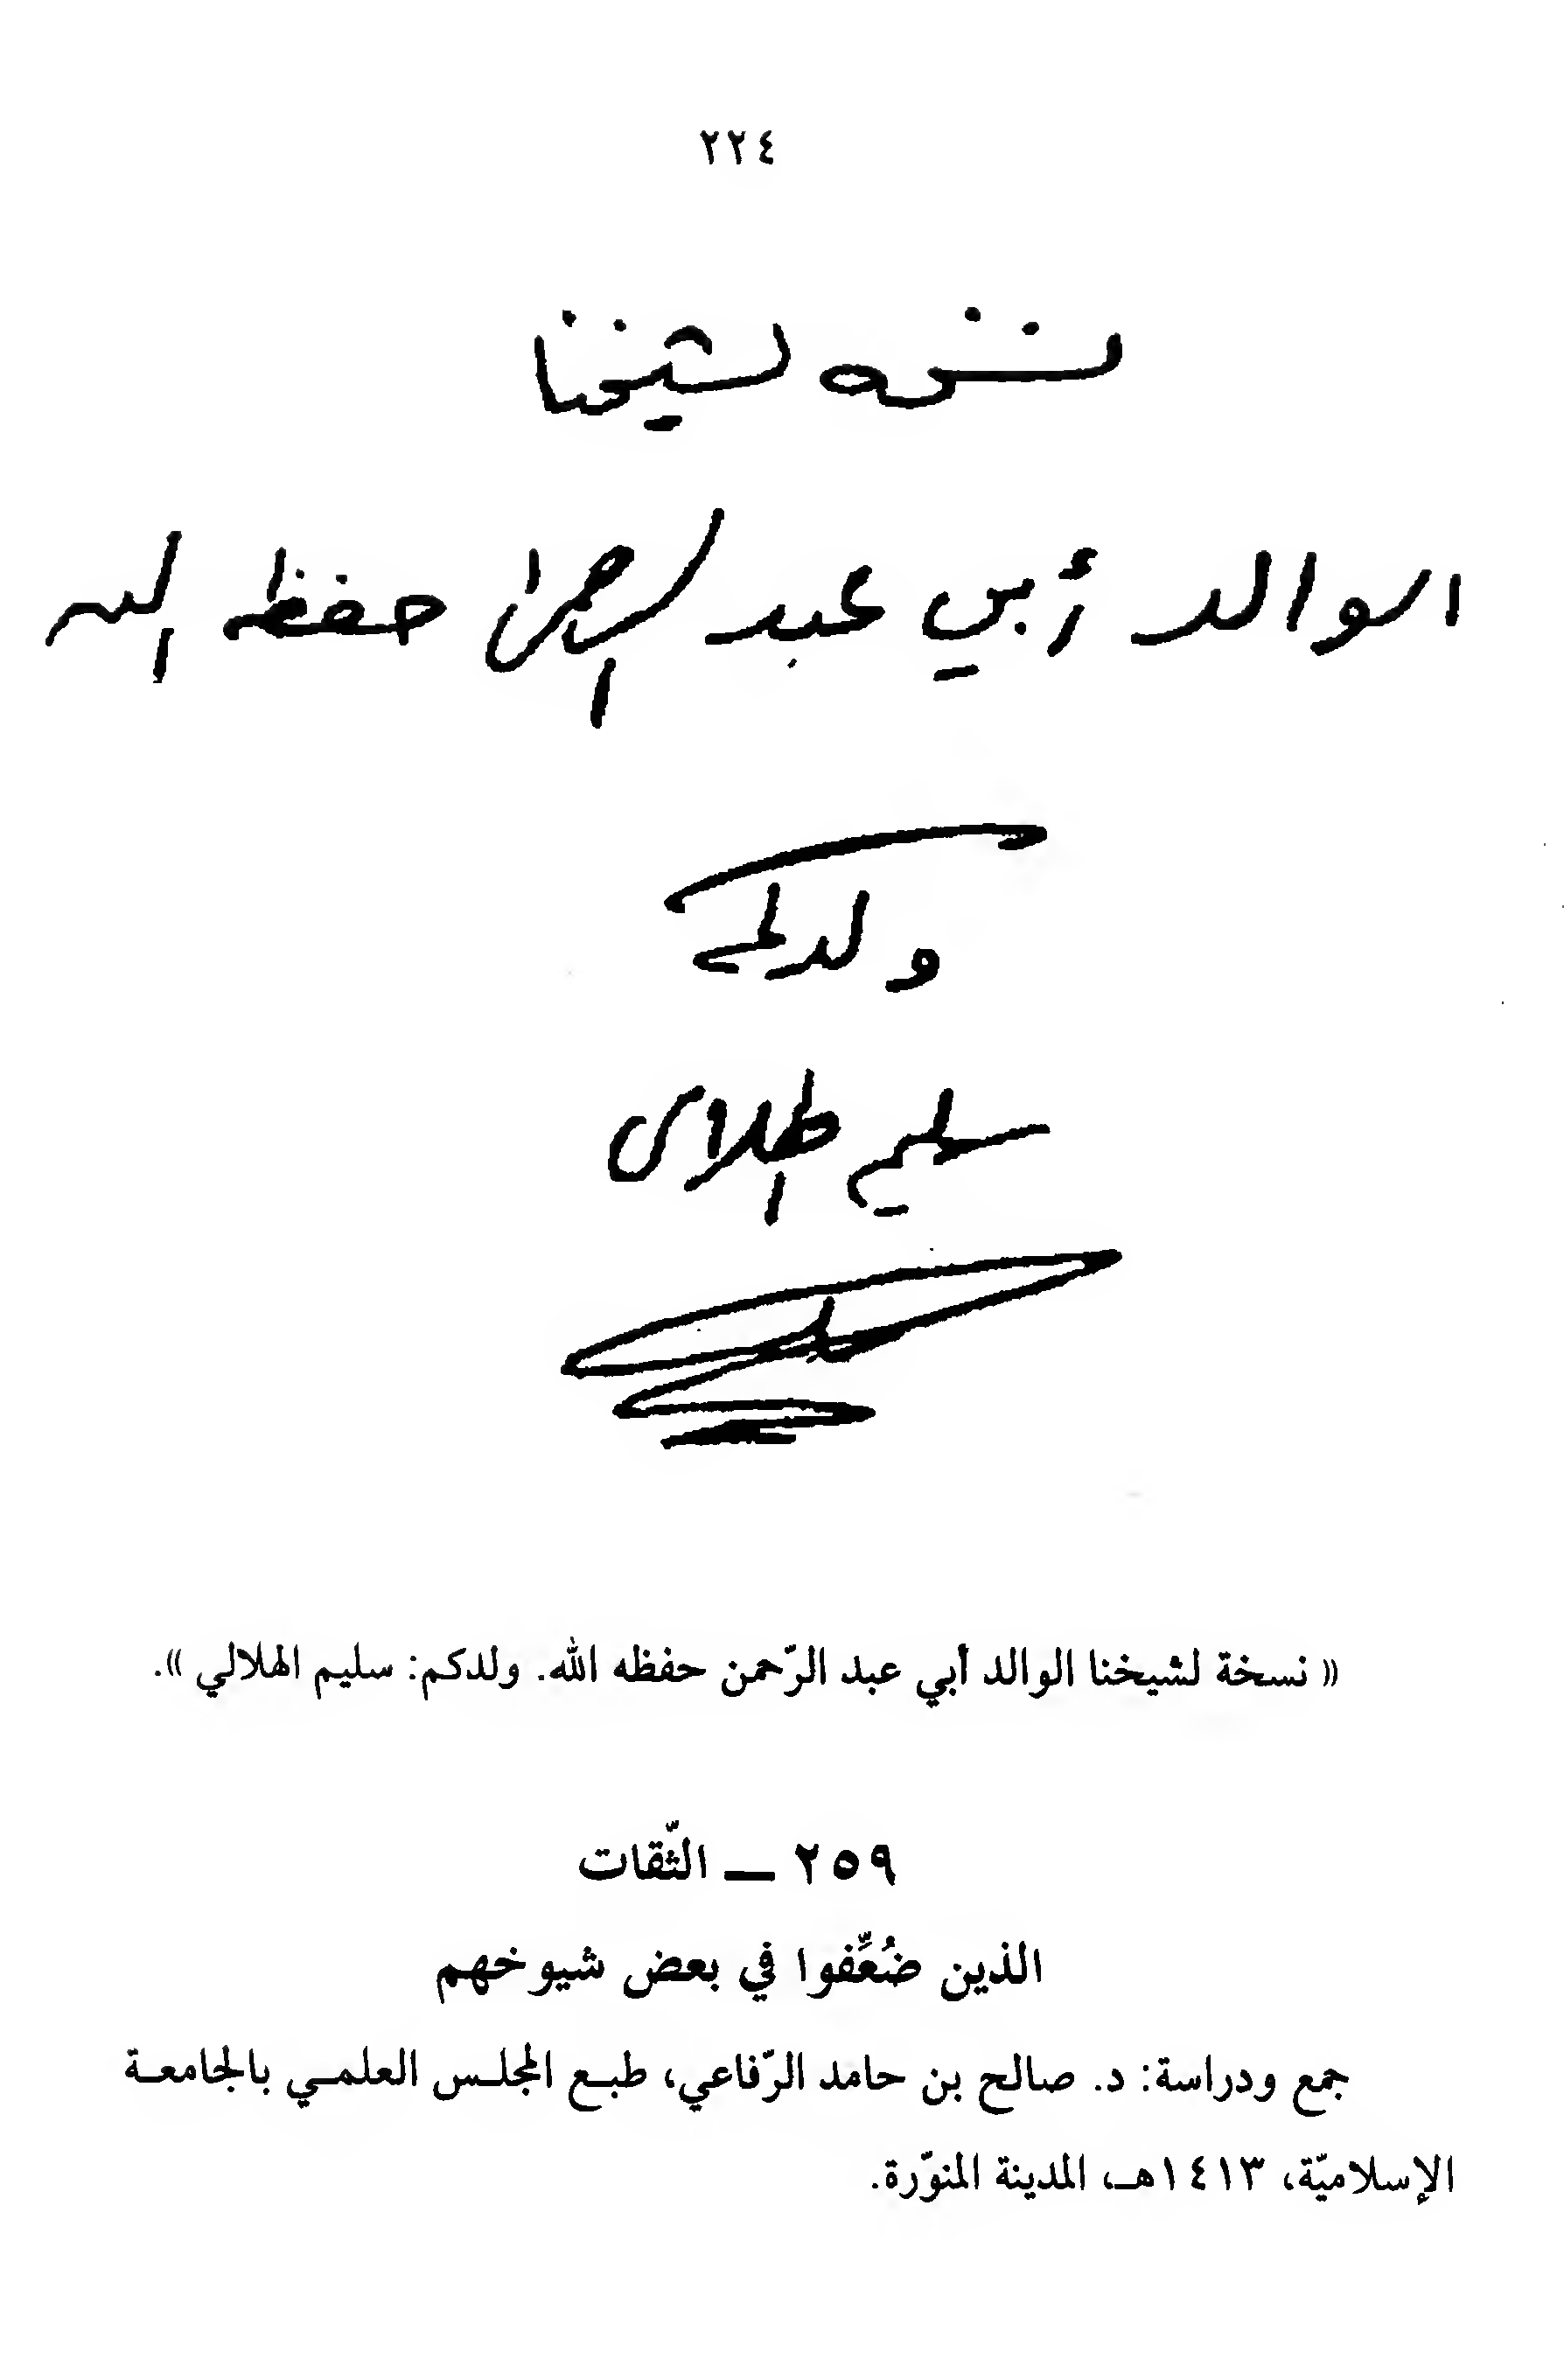 ٢٢٤
نسخه لشيخنا
الوالد أبي عبد الرحمن حفظه الله
ولدكم
سليم الهلالي
« نسخة لشيخنا الوالد أبي عبد الرّحمن حفظه الله. ولدكم: سليم الهلالي ».
٢٥٩ — الثّقات
الذين ضُعِّفوا في بعض شيوخهم
جمع ودراسة: د. صالح بن حامد الرّفاعي، طبع المجلس العلمي بالجامعة
الإسلاميّة، ١٤١٣هـ، المدينة المنوّرة.